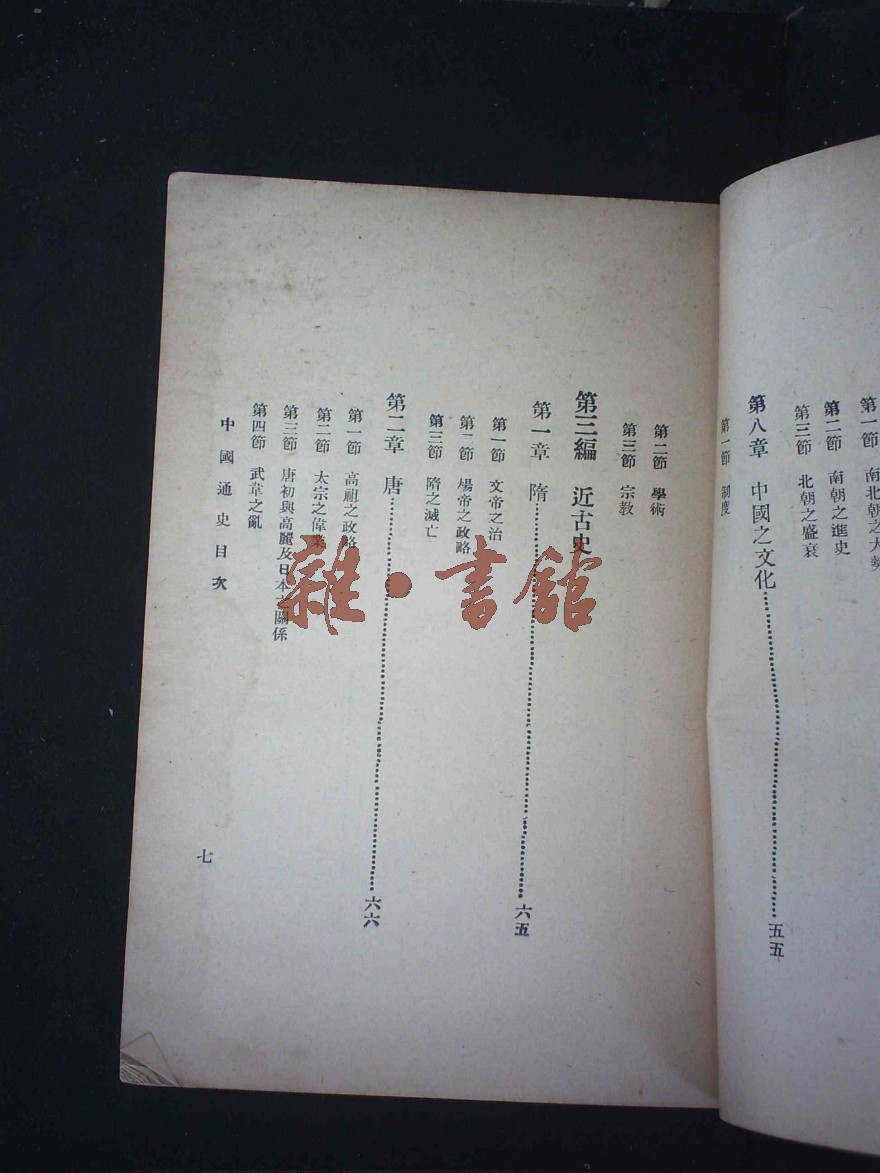 第一節 南北朝之大勢
第二節 南朝之進史
第三節 北朝之盛衰
第八章 中國之文化 五五
第一節 制度
第二節 學術
第三節 宗教
第三編 近古史
第一章 隋 六五
第一節 文帝之治
第二節 煬帝之政略
第三節 隋之滅亡
第二章 唐 六六
第一節 高祖之政略
第二節 太宗之偉業
第三節 唐初與高麗及日本之關係
第四節 武韋之亂
中國通史目次
七
雜·書館